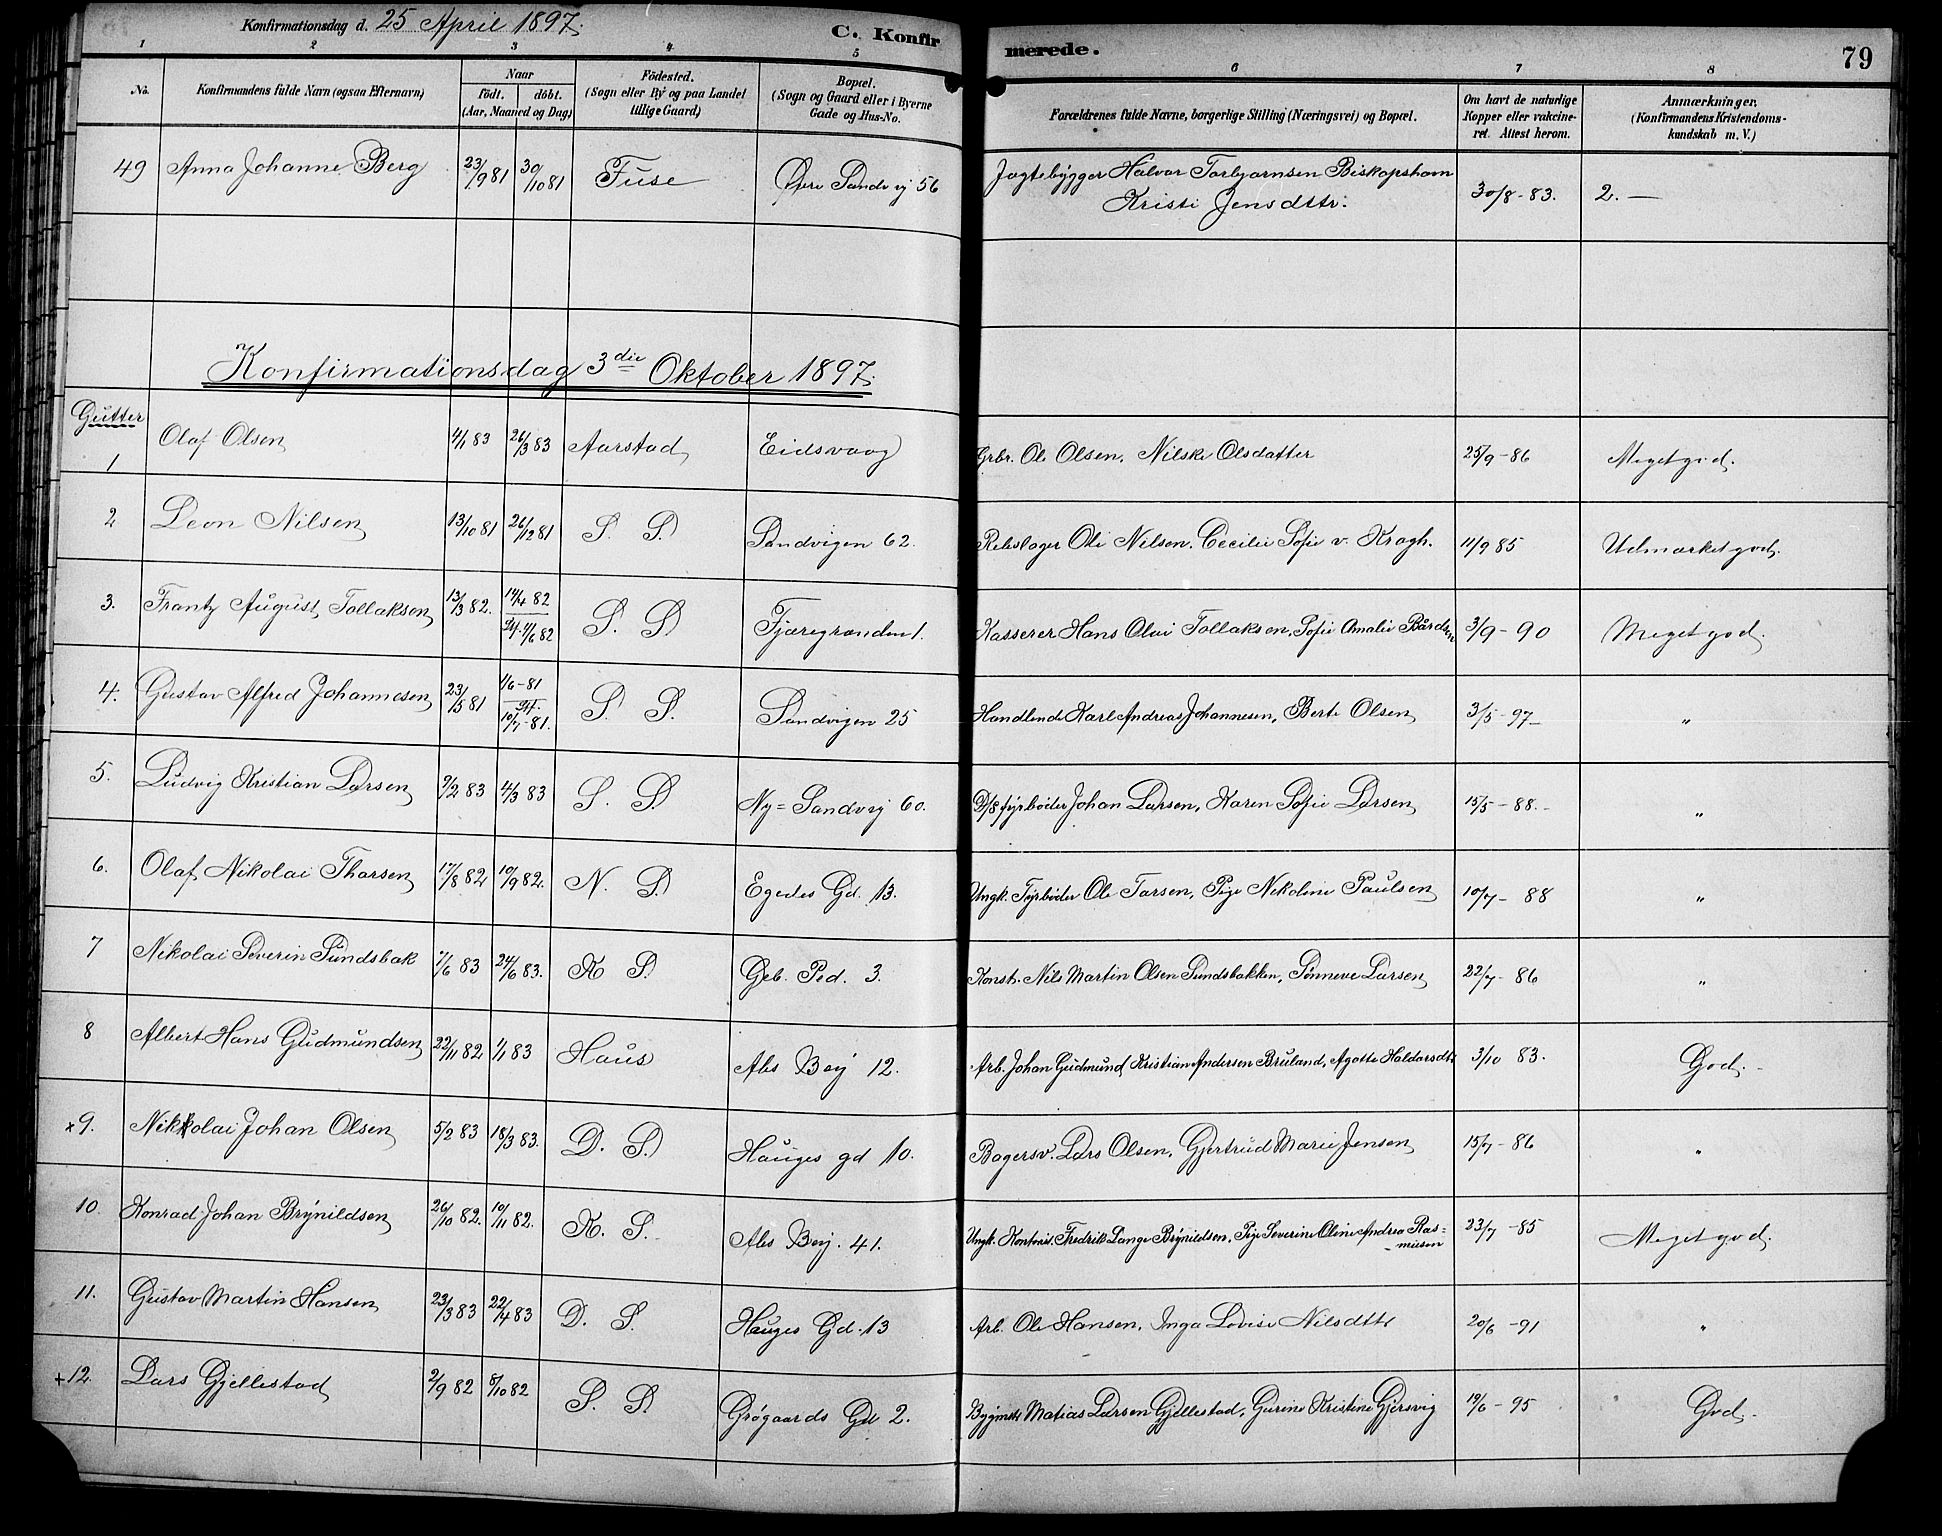 Konfirmationsdag d. 25 April 1897.
C. Konfirmerede.
79
1 2 3 4 5 6 7 8
No.
Konfirmandens fulde Navn (ogsaa Efternavn)
Naar
födt. döbt.
(Aar, Maaned og Dag)
Födested.
(Sogn eller By og paa Landet
tillige Gaard)
Bopæl.
(Sogn og Gaard eller i Byerne
Gade og Hus-No.
Forældrenes fulde Navne, borgerlige Stilling (Næringsvei) og Bopæl.
Om havt de naturlige
Kopper eller vakcine-
ret. Attest herom.
Anmærkninger.
(Konfirmandens Kristendoms-
kundskab m. V.)
49 Anna Johanne Berg 23/9 81 30/10 81 Fuse Øvre Sandvij 56 Jagtebygger Halvor Torbjørnsen Biskopshavn
Kristi Jensdttr. 30/8-83. 2. —
Konfirmationsdag 3die Oktober 1897.
Gutter
1 Olaf Olsen 4/1 83 26/3 83 Aarstad Eidsvaag Grbr. Ole Olsen, Nilske Olsdatter 25/9-86 Meget god.
2 Leon Nilsen 13/10 81 26/12 81 S. S. Sandvigen 62. Rebslager Ole Nilsen. Cecilie Sofie v. Kragh. 11/9 85 Udmærket god.
3. Frantz August Tollaksen 13/3 82. 14/4 82 St. 11/6 82 S. S. Fjæregranden 1. Kasserer Hans Olai Tollaksen, Sofie Amalie Bårdsen 3/9-90 Meget god.
4. Gustav Alfred Johannesen 23/5 81 1/6-81 St. 10/7-81. S. S. Sandvigen 25 Handlende Karl Andreas Johannesen, Berte Olsen 3/5-97- "
5. Ludvig Kristian Larsen 9/2 83 4/3 83 S. S. Ny=Sandvij 60. D/S fyrbøder Johan Larsen, Karen Sofie Larsen 15/5-88.- "
6. Olaf Nikolai Tharsen 17/8 82 10/9 82. N. S. Egedes Gd. 13. Ungk. Fyrbøder Ole Tarsen, Pige Nikoline Paulsen 10/7-88 "
7 Nikolai Severin Sundsbak 7/6 83 24/6 83. K S. Geb. Ped. 3. Konst. Nils Martin Olsen Sundsbakken, Sønneve Larsen 22/7-86 "
8 Albert Hans Gudmundsen 22/11 82 1/1 83 Haus Abs Bøj 12. Arb. Johan Gudmund Kristian Andersen Bruland, Agotte Haldorsdtr 3/10 83. God.-
x9. Nikkolai Johan Olsen 5/2 83 18/3 83. D. S. Hauges gd 10. Bagersv. Lars Olsen, Gjertrud Marie Jensen 15/7-86 "
10. Konrad Johan Brynildsen 26/10 82. 10/11 82. K. S. Abs Bøj. 41. Ungk. Kontorist. Fredrik Lange Brynildsen, Pige Severine Oline Andrea Ras=
-musen 23/7-85 Meget god.
11. Gustav Martin Hansen 23/3 83 22/4 83 D. S. Hauges Gd. 13 Arb. Ole Hansen, Inga Lovise Nilsdttr 20/6-91 "
+12. Lars Gjellestad 2/9 82 8/10 82 S. S. Grøgaards Gd 2. Bygmstr Matias Larsen Gjellestad, Gurine Kristine Gjersvig 19/6-95 God.-